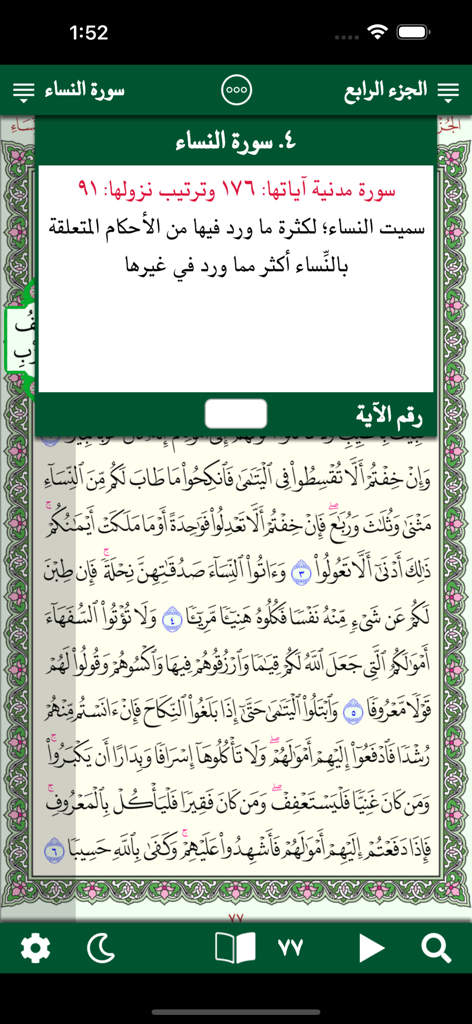 1:52
الجزء الرابع
سورة النساء
٤. سورة النساء
سورة مدنية آياتها: ١٧٦ وترتيب نزولها: ٩١
سميت النساء؛ لكثرة ما ورد فيها من الأحكام المتعلقة
بالنِّساء أكثر مما ورد في غيرها
رقم الآية
وَإِنۡ خِفۡتُمۡ أَلَّا تُقۡسِطُواْ فِي ٱلۡيَتَٰمَىٰ فَٱنكِحُواْ مَا طَابَ لَكُم مِّنَ ٱلنِّسَآءِ
مَثۡنَىٰ وَثُلَٰثَ وَرُبَٰعَۖ فَإِنۡ خِفۡتُمۡ أَلَّا تَعۡدِلُواْ فَوَٰحِدَةً أَوۡ مَا مَلَكَتۡ أَيۡمَٰنُكُمۡۚ
ذَٰلِكَ أَدۡنَىٰٓ أَلَّا تَعُولُواْ ٣ وَءَاتُواْ ٱلنِّسَآءَ صَدُقَٰتِهِنَّ نِحۡلَةٗۚ فَإِن طِبۡنَ
لَكُمۡ عَن شَيۡءٖ مِّنۡهُ نَفۡسٗا فَكُلُوهُ هَنِيٓـٔٗا مَّرِيٓـٔٗا ٤ وَلَا تُؤۡتُواْ ٱلسُّفَهَآءَ
أَمۡوَٰلَكُمُ ٱلَّتِي جَعَلَ ٱللَّهُ لَكُمۡ قِيَٰمٗا وَٱرۡزُقُوهُمۡ فِيهَا وَٱكۡسُوهُمۡ وَقُولُواْ لَهُمۡ
قَوۡلٗا مَّعۡرُوفٗا ٥ وَٱبۡتَلُواْ ٱلۡيَتَٰمَىٰ حَتَّىٰٓ إِذَا بَلَغُواْ ٱلنِّكَاحَ فَإِنۡ ءَانَسۡتُم مِّنۡهُمۡ
رُشۡدٗا فَٱدۡفَعُوٓاْ إِلَيۡهِمۡ أَمۡوَٰلَهُمۡۖ وَلَا تَأۡكُلُوهَآ إِسۡرَافٗا وَبِدَارًا أَن يَكۡبَرُواْۚ
وَمَن كَانَ غَنِيّٗا فَلۡيَسۡتَعۡفِفۡۖ وَمَن كَانَ فَقِيرٗا فَلۡيَأۡكُلۡ بِٱلۡمَعۡرُوفِۚ
فَإِذَا دَفَعۡتُمۡ إِلَيۡهِمۡ أَمۡوَٰلَهُمۡ فَأَشۡهِدُواْ عَلَيۡهِمۡۚ وَكَفَىٰ بِٱللَّهِ حَسِيبٗا ٦
٧٧
٧٧